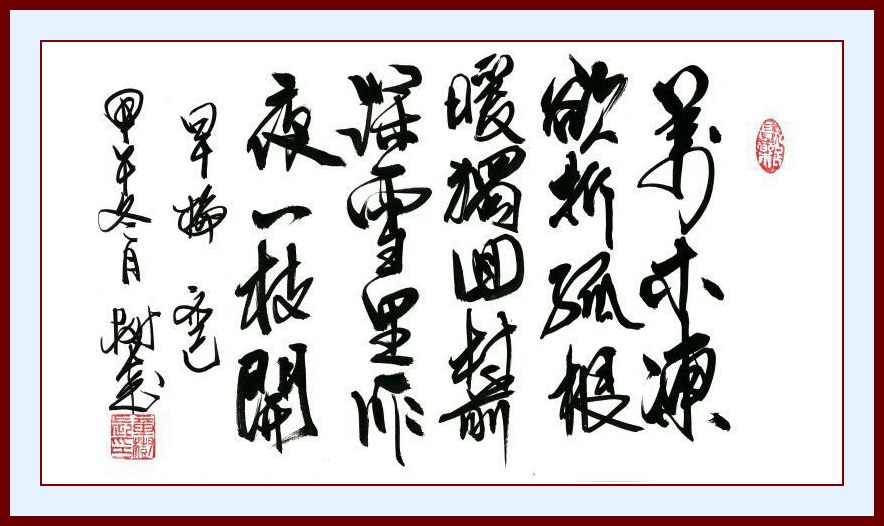 萬木凍
欲折孤根
暖獨回村前
深雪里昨
夜一枝開
早梅 齐己
甲午冬月 树